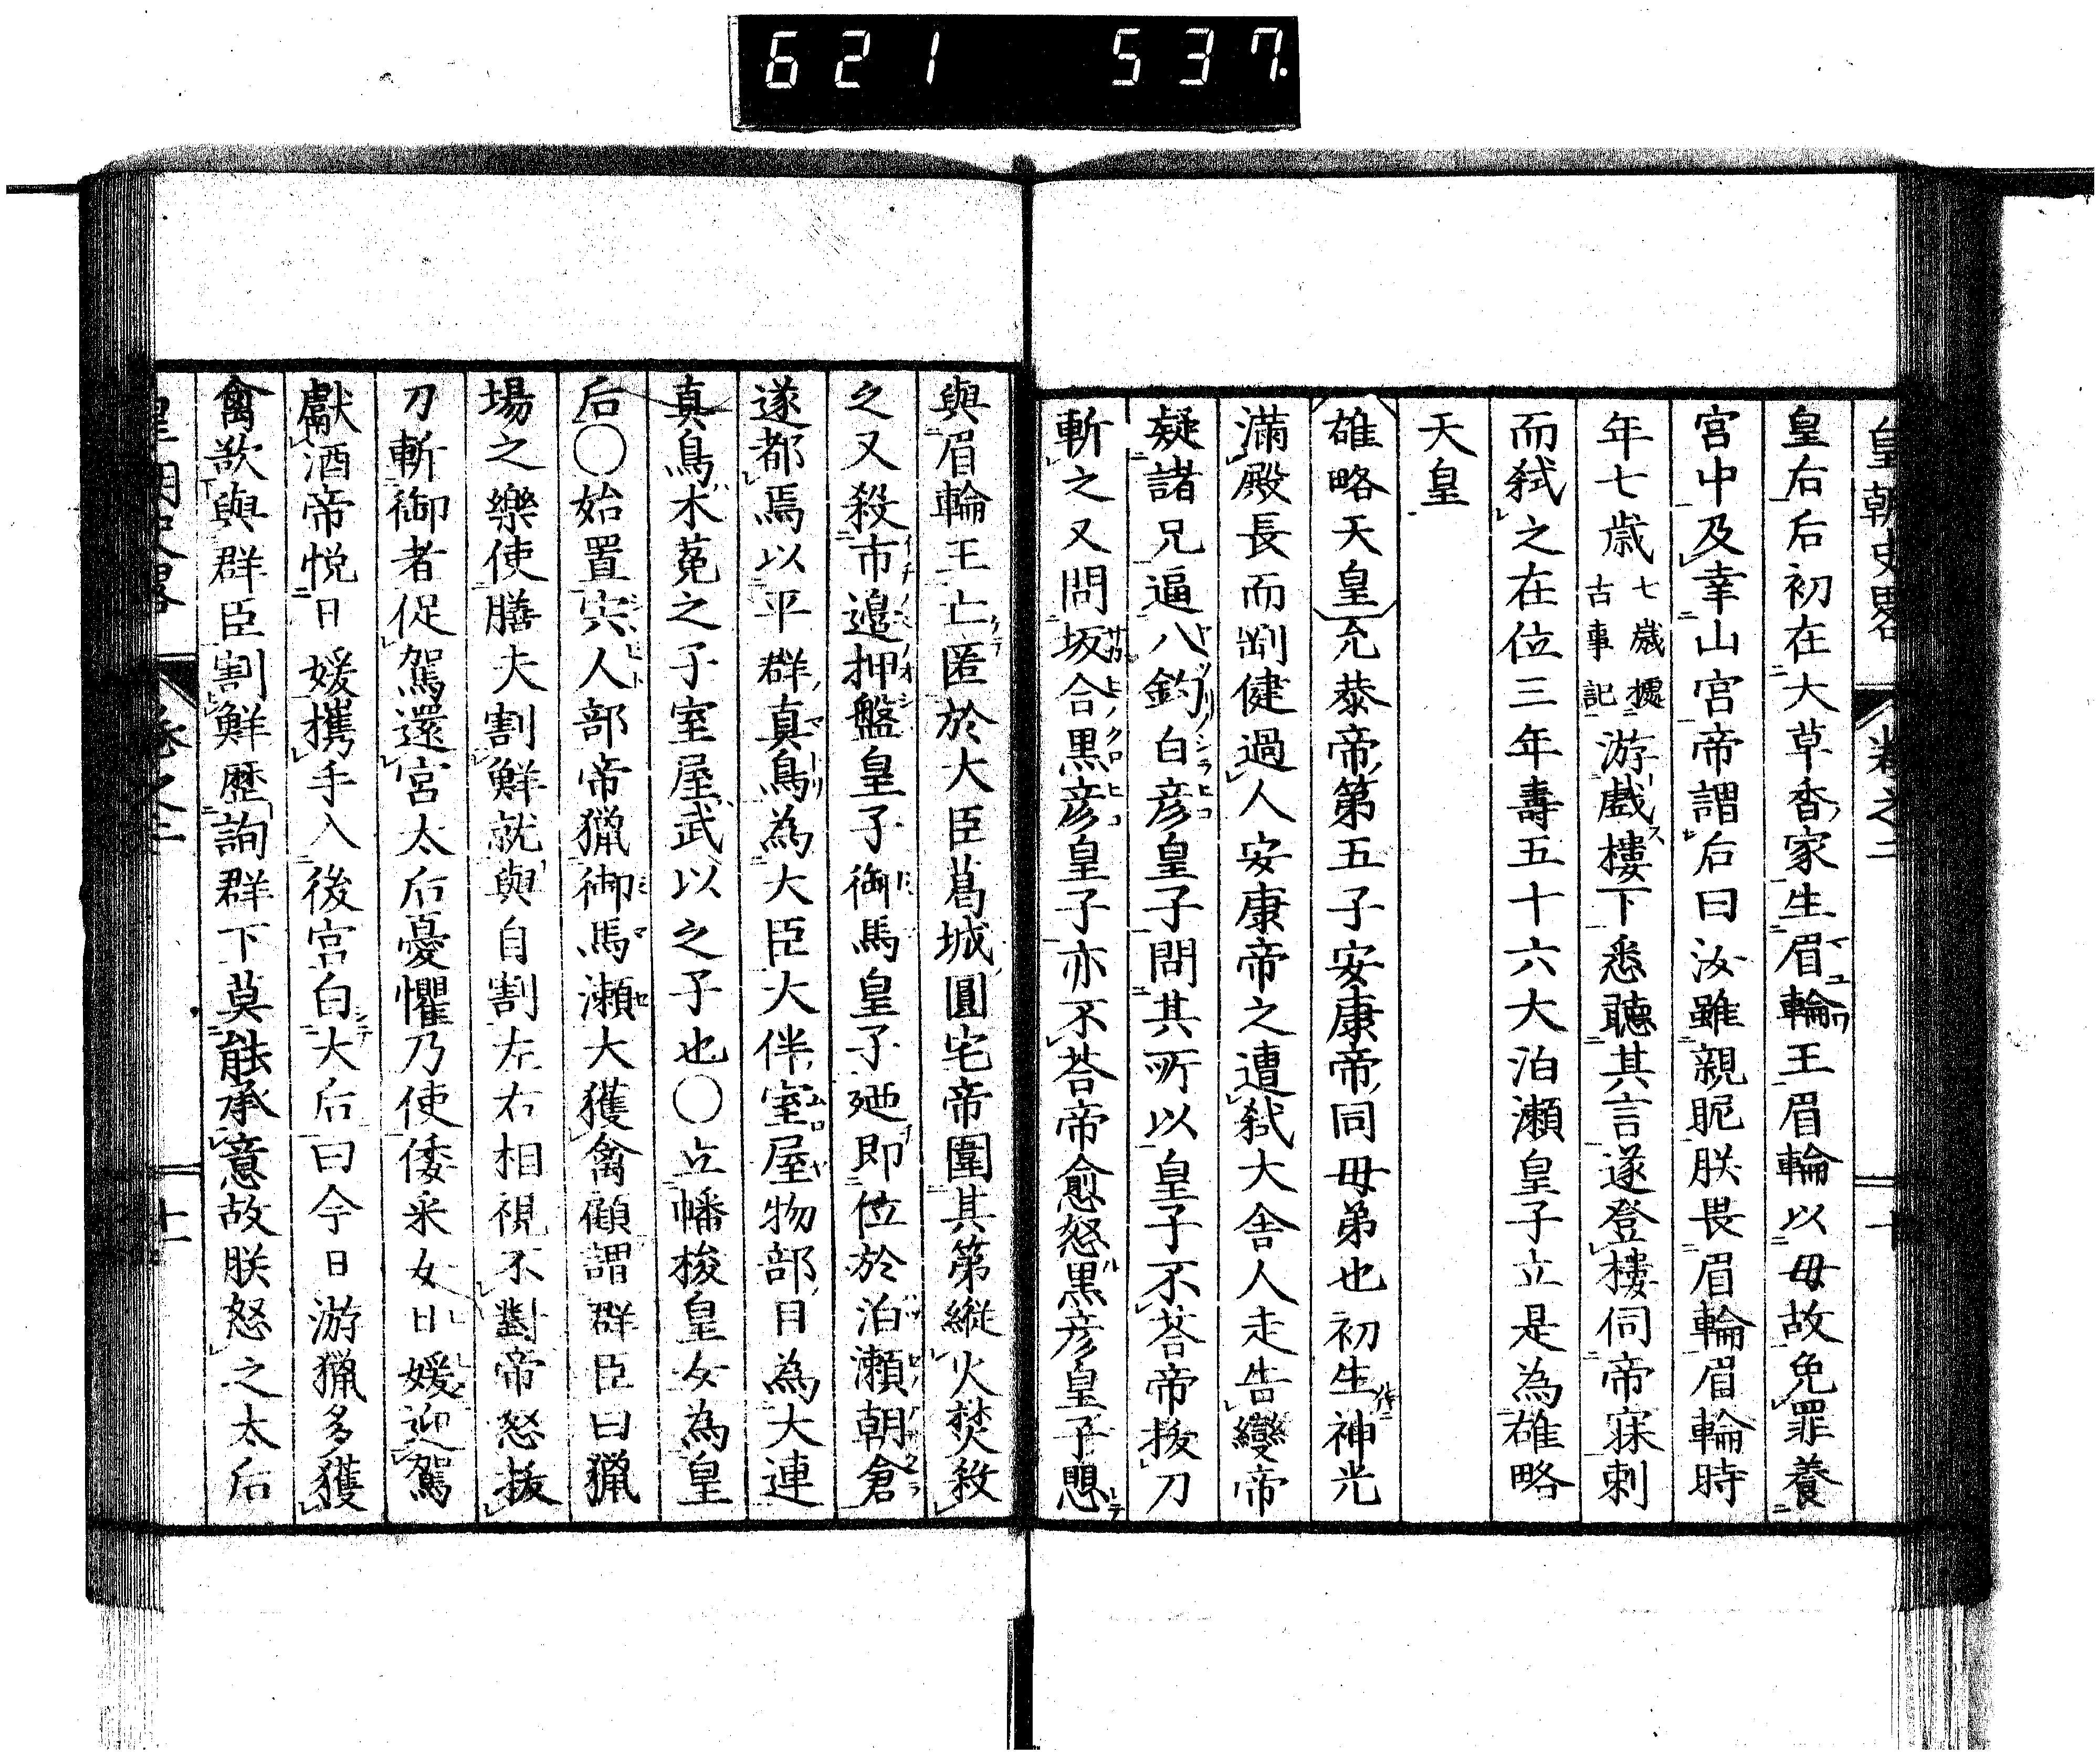 621 537
皇朝史畧 卷之二 十
皇右后初在大草香家生眉輪王眉輪以母故免罪養
宮中及幸山宮帝謂后曰汝雖親眤朕畏眉輪眉輪時
年七歳七歳據古事記游戯樓下悉聽其言遂登樓伺帝寐刺
而弑之在位三年壽五十六大泊瀬皇子立是為雄略
天皇
雄略天皇允恭帝第五子安康帝同母弟也初生神光
滿殿長而剛健過人安康帝之遭弑大舎人走告變帝
疑諸兄逼八釣白彦皇子問其所以皇子不荅帝拔刀
斬之又問坂合黒彦皇子亦不荅帝愈怒黒彦皇子懼
與眉輪王亡匿於大臣葛城圓宅帝圍其第縱火焚殺
之又殺市邉押盤皇子御馬皇子廼即位於泊瀬朝倉
遂都焉以平群真鳥為大臣大伴室屋物部目為大連
真鳥木菟之子室屋武以之子也〇立幡梭皇女為皇
后〇始置宍人部帝獵御馬瀬大獲禽顧謂群臣曰獵
場之樂使膳夫割鮮就與自割左右相視不對帝怒拔
刀斬御者促駕還宮太后憂懼乃使倭采女日媛迎駕
獻酒帝悦日媛攜手入後宮白大后曰今日游獵多獲
禽欲與群臣割鮮歴詢群下莫能承意故朕怒之太后
皇朝史畧 卷之二 十一